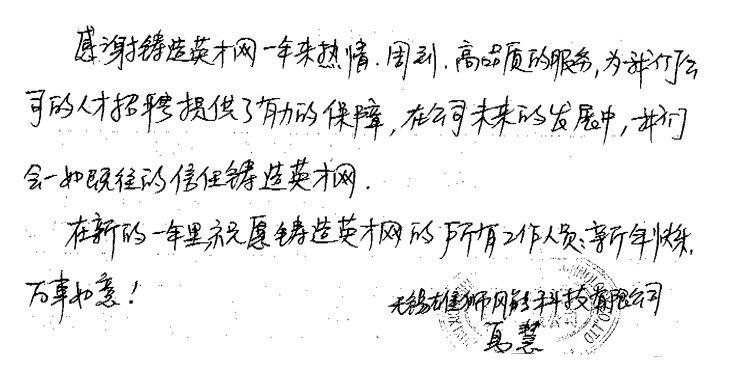 感谢铸造英才网一年来热情、周到、高品质的服务,为我们公
司的人才招聘提供了有力的保障,在公司未来的发展中,我们
会一如既往的信任铸造英才网.
在新的一年里祝愿铸造英才网的所有工作人员:新年快乐,
万事如意!
无锡雄师风能科技有限公司
高慧